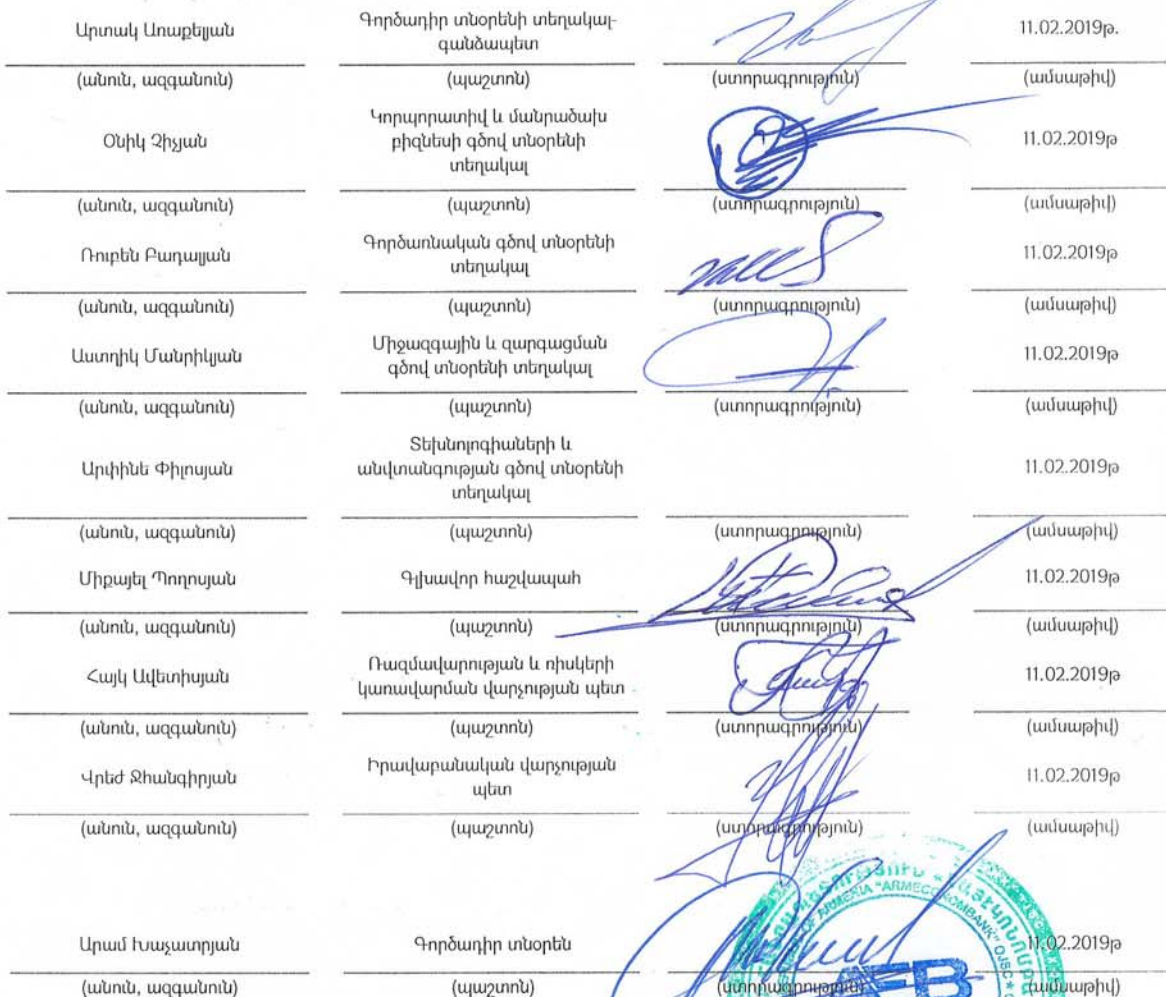 Արտակ Առաքելյան
Գործադիր տնօրենի տեղակալ-
գանձապետ
11.02.2019թ.
(անուն, ազգանուն) (պաշտոն) (ստորագրություն) (ամսաթիվ)
Օնիկ Չիչյան
Կորպորատիվ և մանրածախ
բիզնեսի գծով տնօրենի
տեղակալ
11.02.2019թ
(անուն, ազգանուն) (պաշտոն) (ստորագրություն) (ամսաթիվ)
Ռուբեն Բադալյան
Գործառնական գծով տնօրենի
տեղակալ
11.02.2019թ
(անուն, ազգանուն) (պաշտոն) (ստորագրություն) (ամսաթիվ)
Աստղիկ Մանրիկյան
Միջազգային և զարգացման
գծով տնօրենի տեղակալ
11.02.2019թ
(անուն, ազգանուն) (պաշտոն) (ստորագրություն) (ամսաթիվ)
Արփինե Փիլոսյան
Տեխնոլոգիաների և
անվտանգության գծով տնօրենի
տեղակալ
11.02.2019թ
(անուն, ազգանուն) (պաշտոն) (ստորագրություն) (ամսաթիվ)
Միքայել Պողոսյան
Գլխավոր հաշվապահ
11.02.2019թ
(անուն, ազգանուն) (պաշտոն) (ստորագրություն) (ամսաթիվ)
Հայկ Ավետիսյան
Ռազմավարության և ռիսկերի
կառավարման վարչության պետ
11.02.2019թ
(անուն, ազգանուն) (պաշտոն) (ստորագրություն) (ամսաթիվ)
Վրեժ Ջհանգիրյան
Իրավաբանական վարչության
պետ
11.02.2019թ
(անուն, ազգանուն) (պաշտոն) (ստորագրություն) (ամսաթիվ)
Արամ Խաչատրյան
Գործադիր տնօրեն
11.02.2019թ
(անուն, ազգանուն) (պաշտոն) (ստորագրություն) (ամսաթիվ)
OF ARMENIA "ARMECONOMBANK" OJSC
AEB